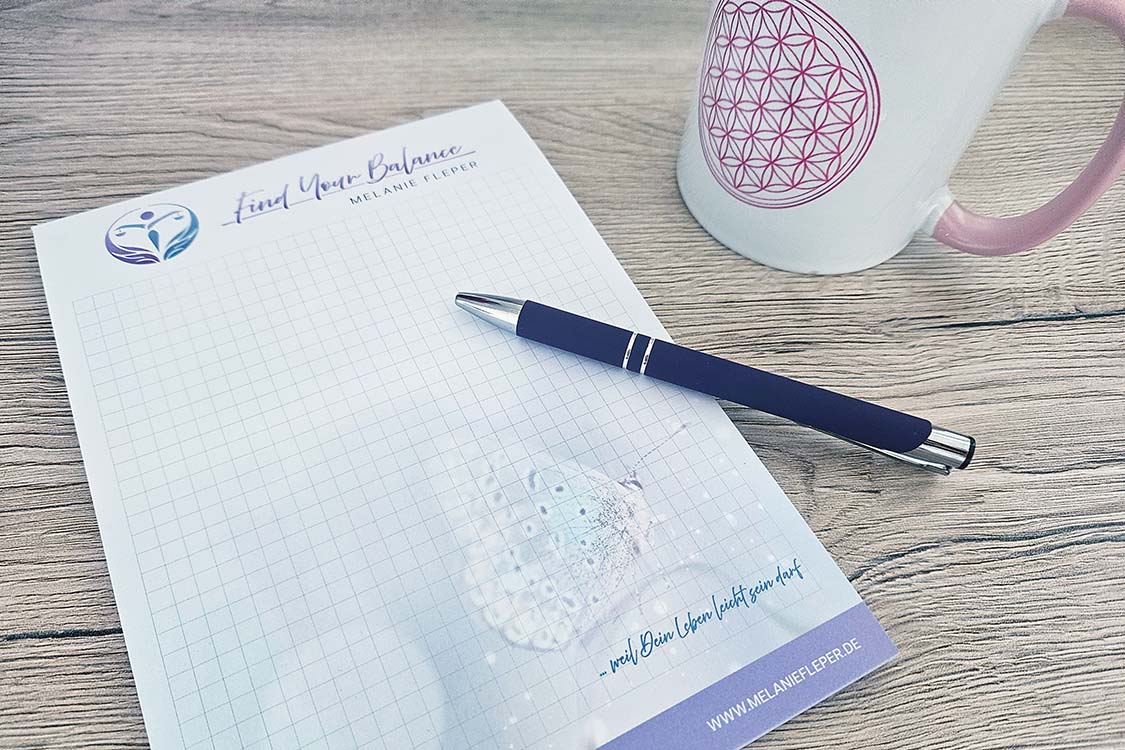 Find Your Balance
MELANIE FLEPER
... weil Dein Leben leicht sein darf
WWW.MELANIEFLEPER.DE